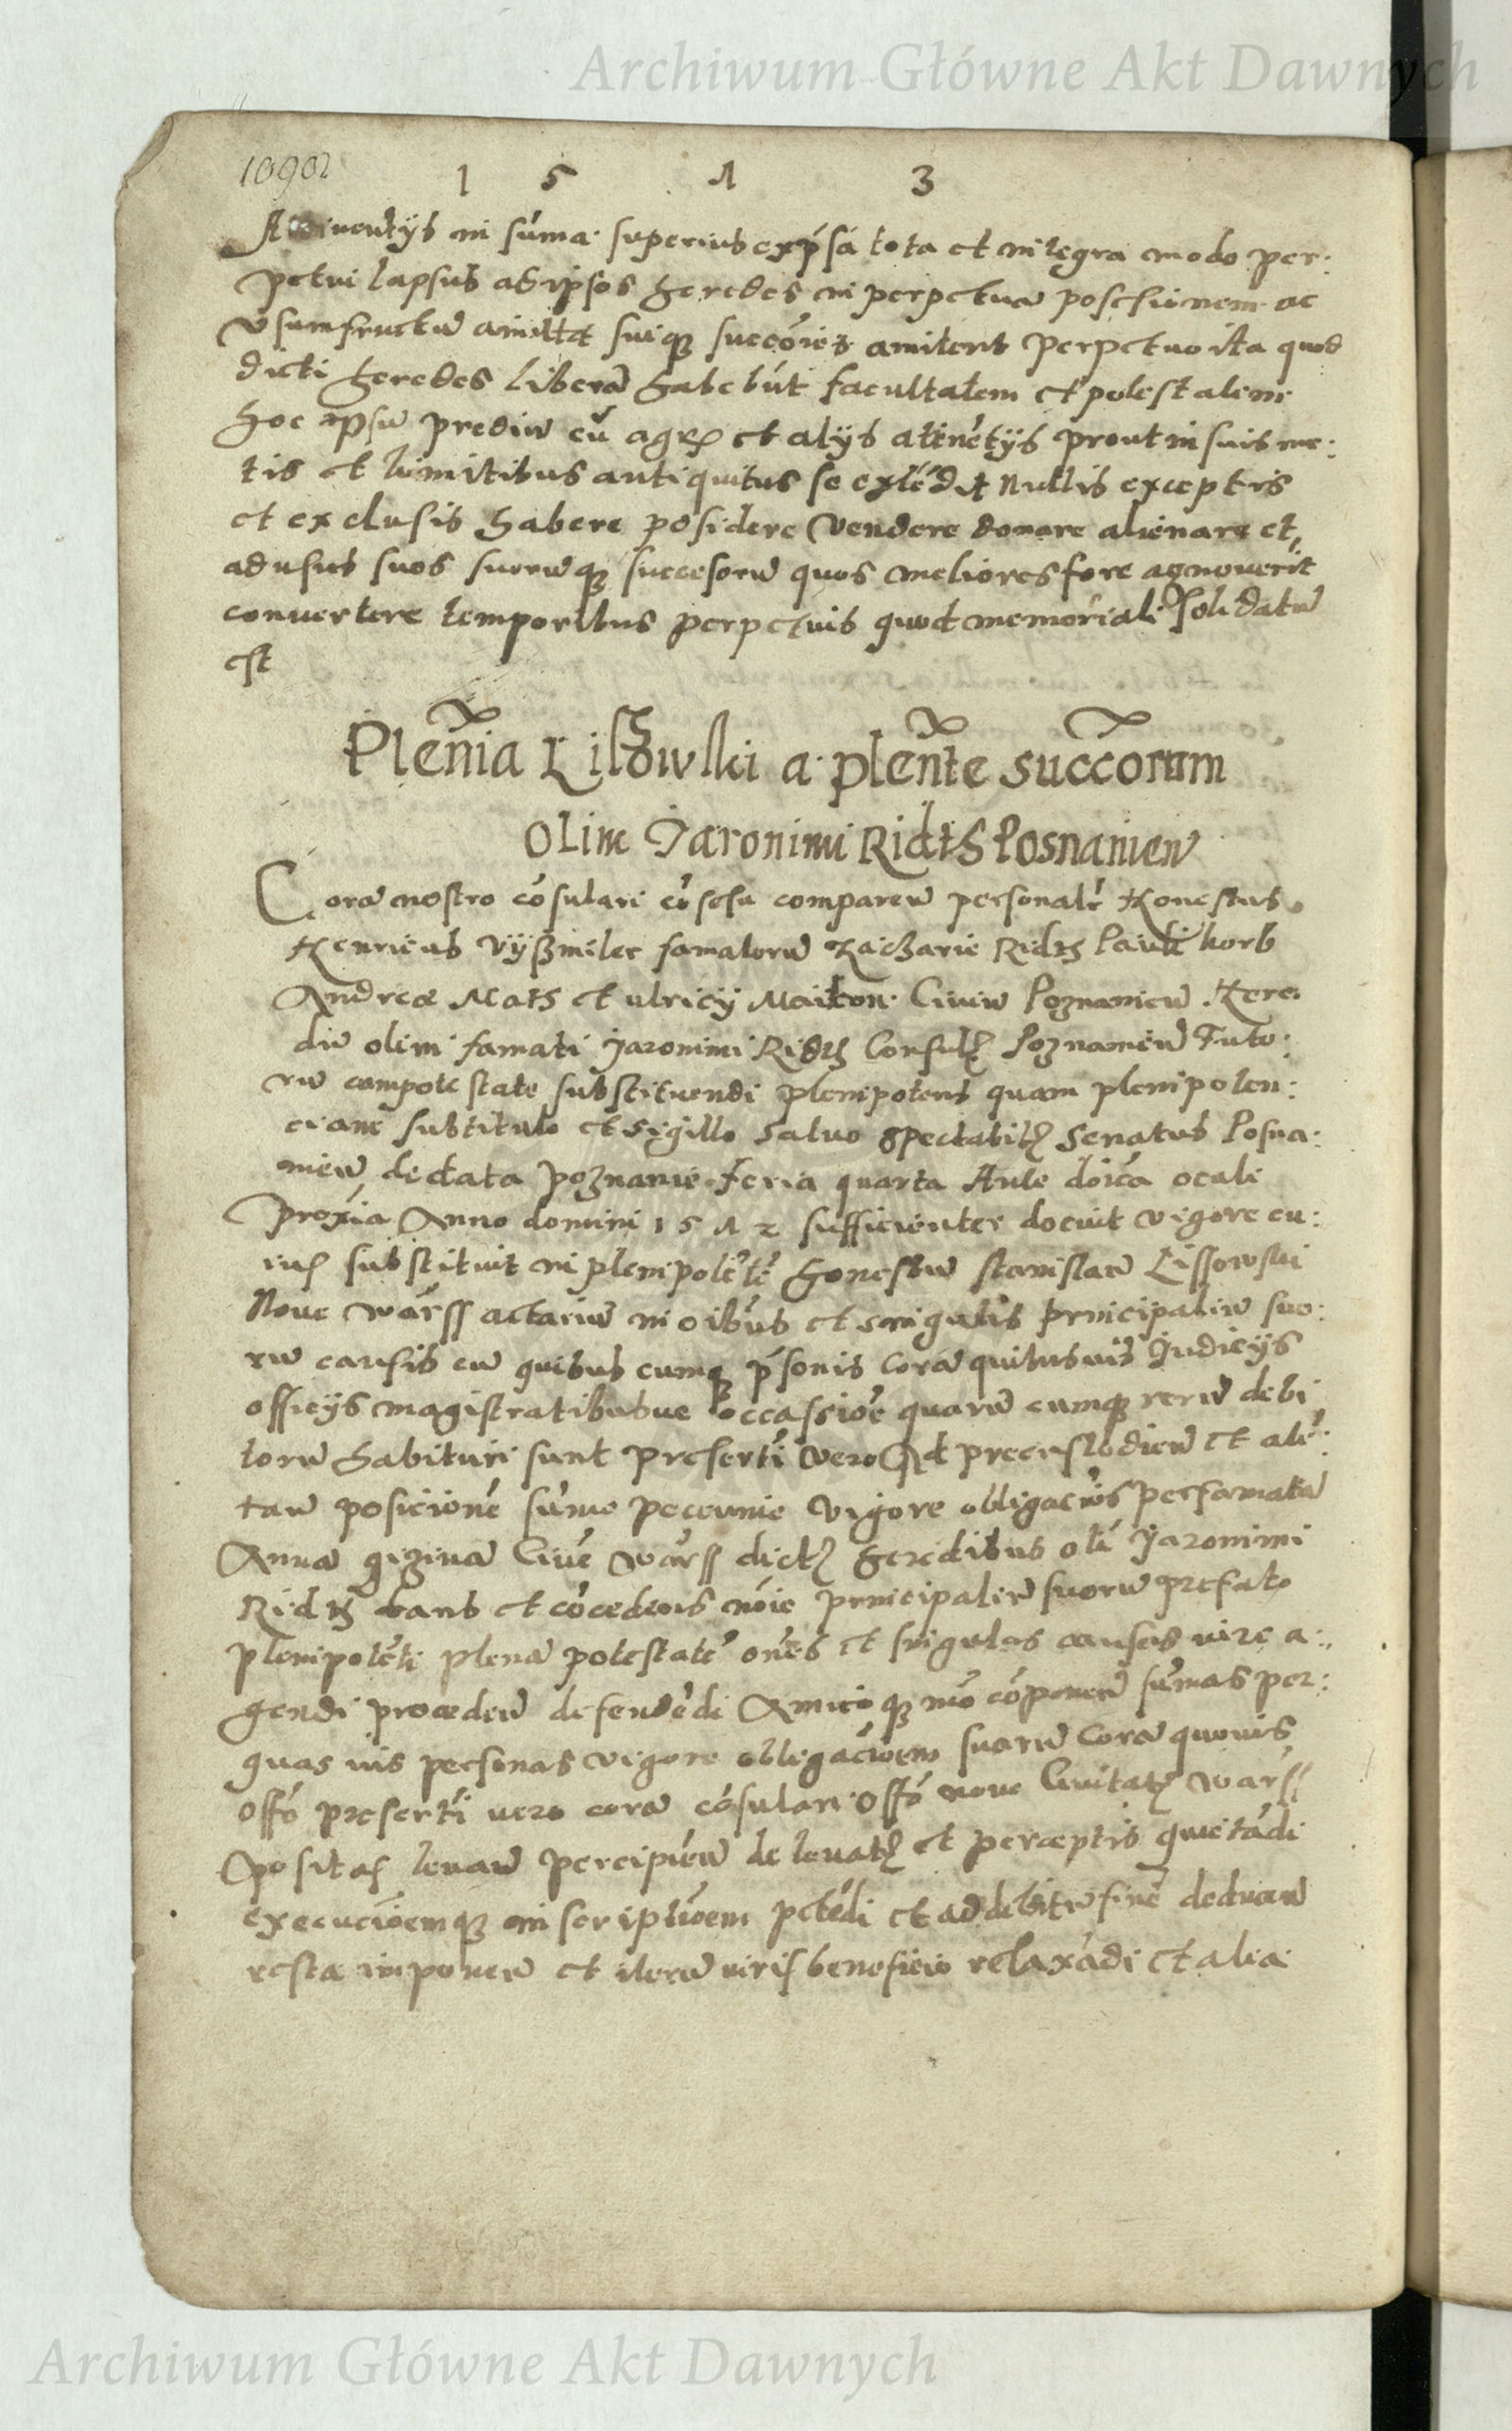 Archiwum Główne Akt Dawnych
1 5 4 3
in sũma superius exp̃sa tota et integra modo per:
petui lapsus ad ipsos heredes in perpetuã possesionem ac
usumfructũ suiqꝫ amitent perpetuo ita quod
dicti heredes liberã habebũt facultatem et potestatem
hoc ipsũ prediũ cũ et alijs atinẽtijs prout in suis me:
tis et limitibus antiquitus se extẽdit Nullis exceptis
et exclusis habere posidere vendere donare alienare et
ad usus suos suorũqꝫ succesorũ quos meliores fore agnoverit
convertere temporibus perpetuis quod memoriali solidatũ
est
Pleñia Lissowski a pleñte succorum
Olim Jaronimi Ridts Posnanien̄
Corã nostro cõsulari cõsesu comparen̄ personalr̃ Honestus
Henricus famatorũ Zacharie Ridtz Pauli korb
Andreæ Mats et ulricij Civiũ Poznanien̄ Here
diũ olim famati Jaronimi Ridtz Consulꝭ Poznanien̄ Tuto:
rũ cum potestate substituendi plenipotens quam plenipoten:
ciam sub titulo et sigillo salvo spectabilꝭ Senatus Posna:
nien̄ de data Poznanie feria quarta Ante doĩca oculi
proxĩa Anno domini 1 5 4 2 sufficienter docuit vigore cu:
ius substituit in plenipotẽtẽ honestũ stanislaũ Lissowski
Nove Warss actariũ in oĩbus et singulis principaliũ suo:
rũ causis cũ quibuscumqꝫ p̃sonis Corã quibusvis Judicijs
officijs magistratibusve occassiõe quarũcumqꝫ rerũ debi
torũ habituri sunt presertĩ vero Ad et
posicionẽ sũme pecunie vigore obligaciõis per famatã
Annã Civẽ Warss dictꝭ heredibus olĩ Jaronimi
Ridtz dans et cõcedens nõie principaliũ suorũ prefato
plenipotẽti plenã potestatẽ omẽs et singulas causas iure a:
gendi proceden̄ defendẽdi Amicoqꝫ mõ cõponen̄ sũmas per:
quasvis personas vigore obligaciõem suarũ Corã quovis
Offõ presertĩ vero corã cõsulari Offõ nove Civitatꝭ Warss
positas levan̄ percipien̄ de levatꝭ et perceptis quietãdi
execuciõemqꝫ inscriptiõem petẽdi et ad debitũ finẽ deducen̄
resta imponen̄ et iterũ iuris beneficio relaxãdi Et alia
Archiwum Główne Akt Dawnych